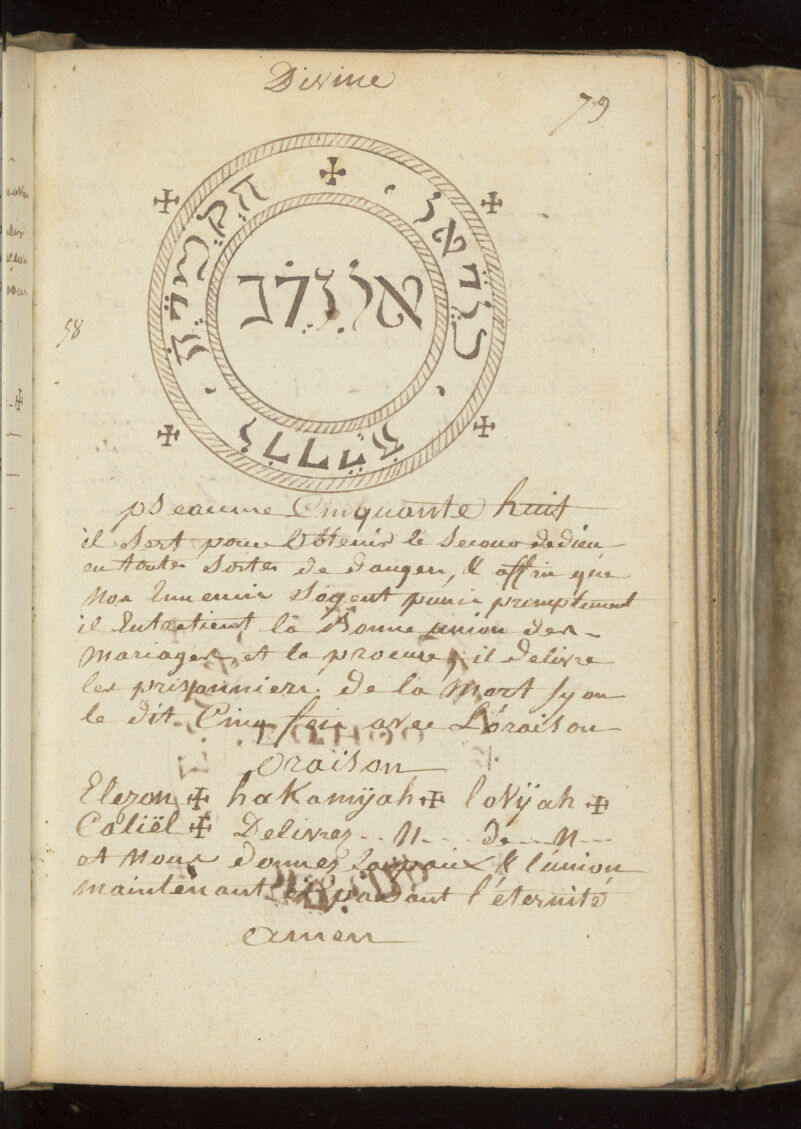 Divine
79
58
pseaume Cinquante huit
il sert pour obtenir le secour de dieu
en toutes sortes de danger, & affin que
nos Ennemis soyent punis promptement
il Entretient la Bonne union des
mariages, et la procure, il delivre
les prisonniers de la mort sy on
le dit Cinq fois avec L'oraison
oraison
Elezon ✠ hakamÿah ✠ loVÿah ✠
Caliël ✠ Delivrez .. N .... de ... N ...
et nous donnez la paix & l'union
maintenant et pandant l'éternité
amen